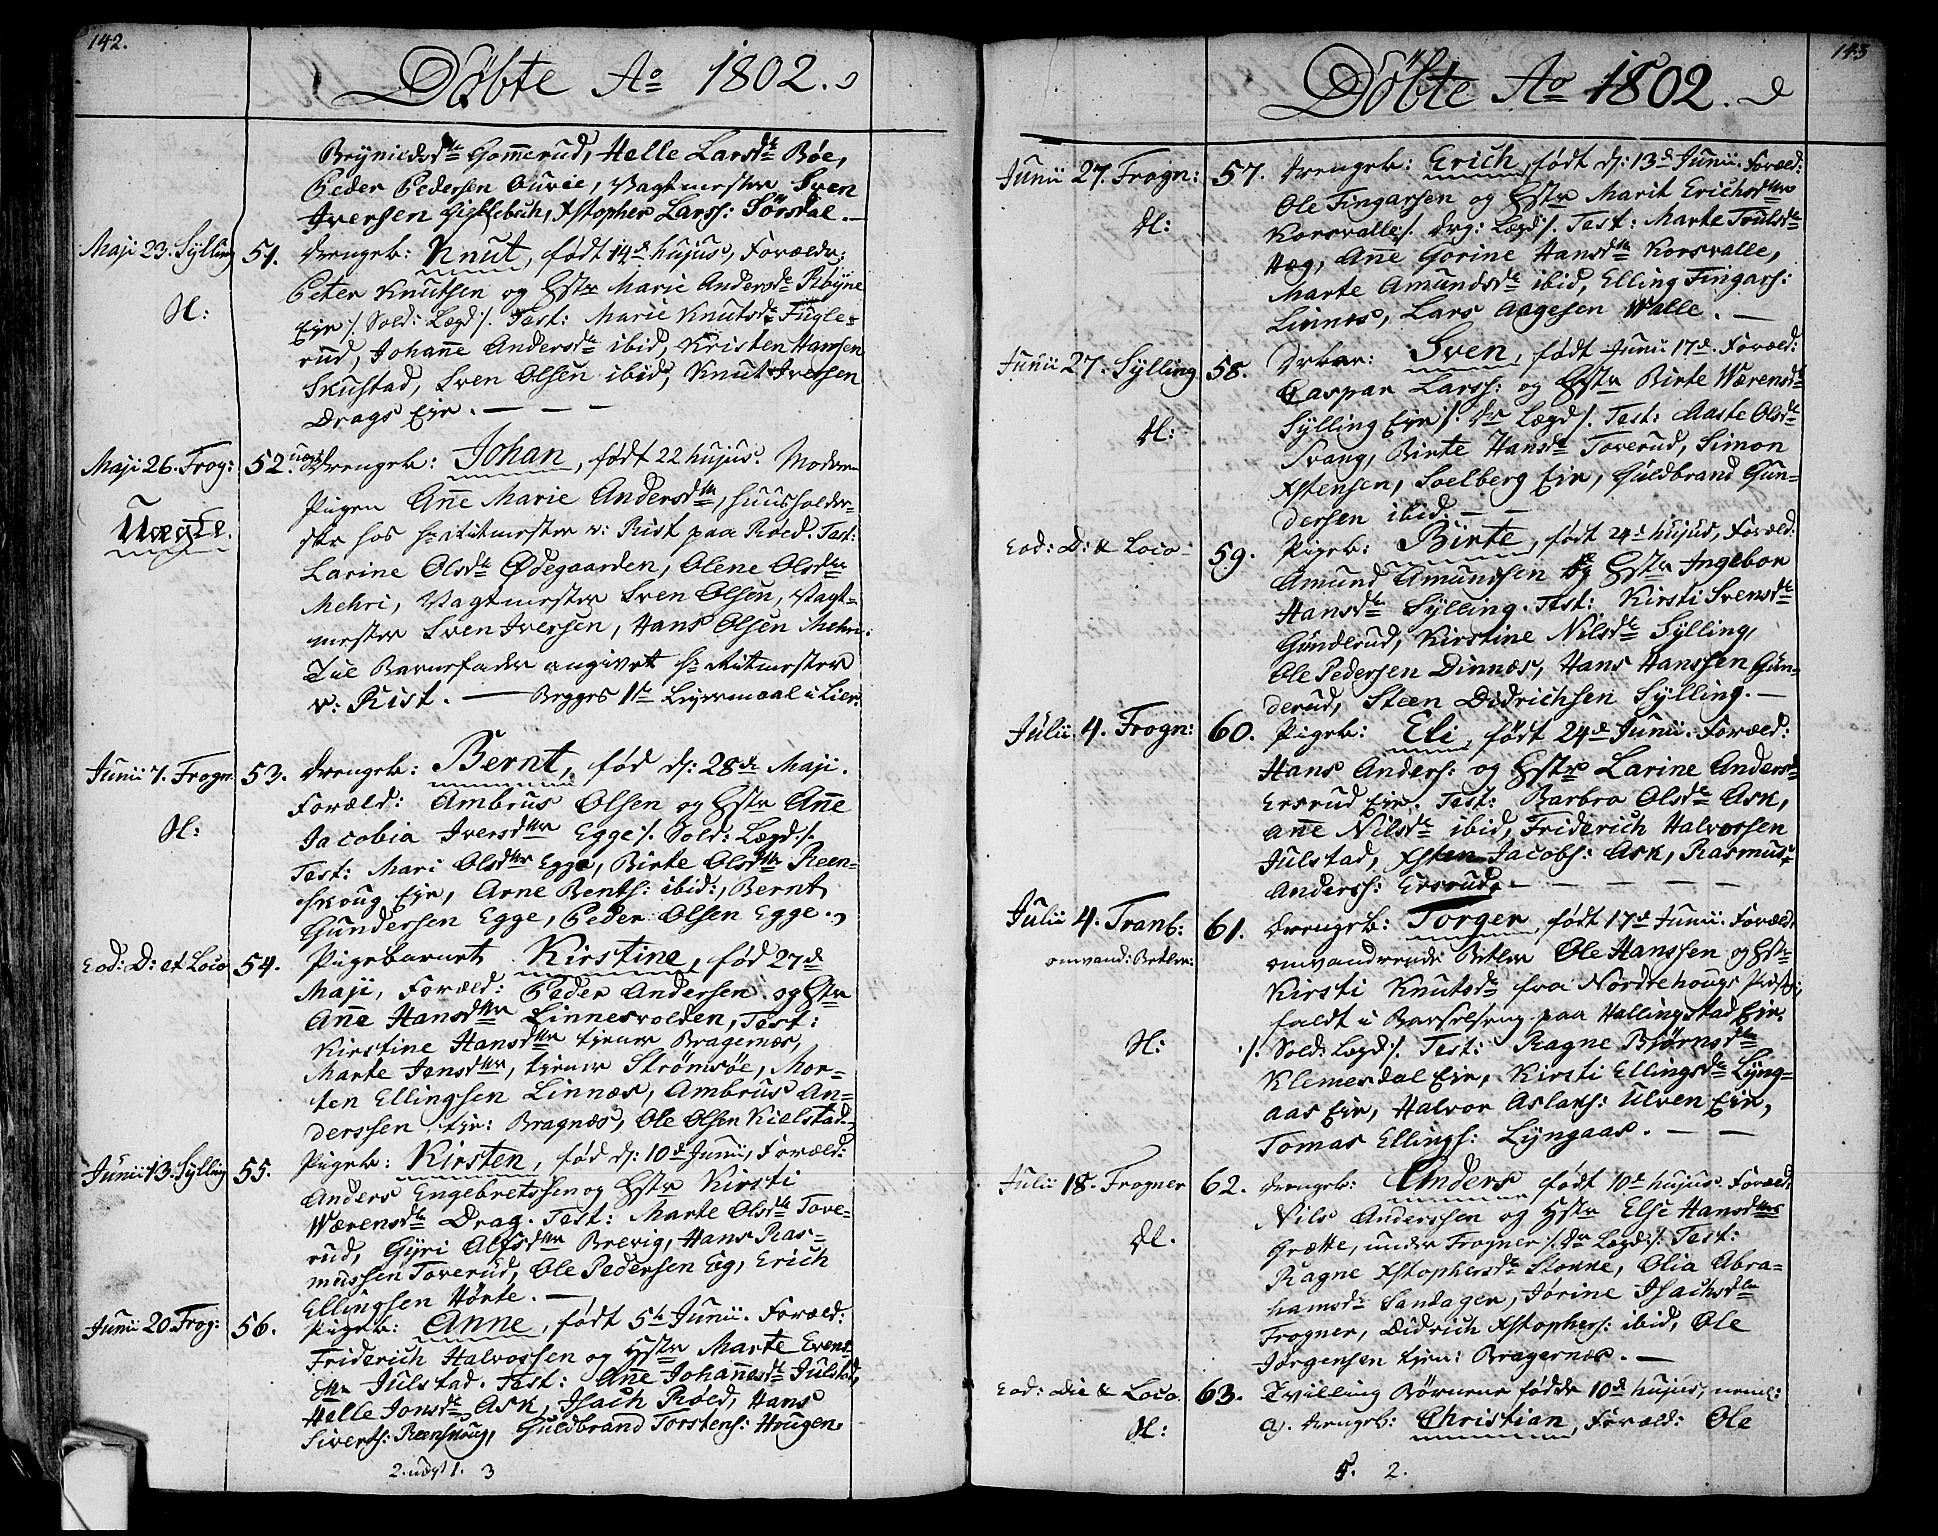 142.
Döbte Ao 1802.
Brynildsdtr Gommerud, Helle Larsdtr Bøe,
Peder Pedersen Ouvie, Vagtmester Sven
Iversen, Xstopher Larss: Sörsdal.
Maji 23. Sylling 51. Drengeb: Knut, født 14de hujus, Forældr:
Peter Knutsen og Hstr Marie Andersdr Røyne
Sl: Eje /. Sold: Lægd /. Test: Marie Knutsdr Fugle-
rud, Johanne Andersdr ibid, Kristen Hansen
Skustad, Sven Olsen ibid, Knut Iversen
Drags Eje. — — —
Maji 26. Frog: 52. uægt Drengeb: Johan, født 22 hujus. Moderen
Pigen Anne Marie Andersdtr, huusholder-
Uægte. ske hos Hr Ritmester v: Kist paa Røed. Test:
Larine Olsdr Ødegaarden, Olene Olsdtr
Mehri, Vagtmester Sven Olsen, Vagt-
mester Sven Iversen, Hans Olsen Mehri.
Til Barnefader angivet Hr Ritmester
v: Kist. — Begges 1te Leiermaal i Lier.
Junii 7. Frogn. 53. Drengeb: Bernt, fød d: 28de Maji.
Foræld: Ambrus Olsen og Hstr Anne
Sl: Jacobia Iversdtr Egge /. Sold: Lægd /.
Test: Mari Olsdtr Egge, Birte Olsdtr Reen-
skoug Eje, Arne Bents: ibid:, Bernt
Gundersen Egge, Peder Olsen Egge.
Eod: D: et Loco 54. Pigebarnet Kirstine, fød 27de
Maji, Foræld: Peder Andersen og Hstr
Anne Hansdtr Linnesvolden, Test:
Kirstine Hansdtr tjener Bragernæs,
Marte Jensdtr, tjener Strömsöe, Mor-
ten Ellingsen Linnæs, Ambrus An-
derssen tje: Bragnæs, Ole Olsen Kielstad.
Junii 13. Sylling 55. Pigeb: Kirsten, fød d: 10de Junii, Foræld:
Anders Engebretssen og Hstr Kirsti
Wærensdr Drag. Test: Marte Olsdr Tove-
rud, Gyri Alfsdtr Brevig, Hans Ras-
mussen Toverud, Ole Pedersen Eg, Erich
Ellingsen Hörte. —
Junii 20 Frog: 56. Pigeb: Anne, født 5te Junii. Foræld:
Friderich Halvossen og Hstr Marte Evens-
dtr Julstad. Test: Anne Johannesdr Julstad,
Helle Jonsdr Ask, Isach Röed, Hans
Siverts: Reenskoug, Guldbrand Torstens: Hougen
2. uægt 1. 3
143
Döbte Ao 1802.
Junii 27. Frogn: 57. Drengeb: Erich, født d: 13de Junii. Foræld:
Ole Fingarsen og Hstr Marit Erichsdtr
Dl: Korsvalle /. Drg: Lægd /. Test: Marte Truls dr
Hæg, Anne Gorine Hansdtr Korsvalle,
Marte Amundsdr ibid, Elling Fingars:
Linnes, Lars Aagesen Walle. —
Junii 27. Sylling 58. Drbar: Sven, født Junii 17de. Foræld:
Caspar Larss: og Hstr Birte Wærensdr
Dl: Sylling Eje /. Dr Lægd /. Test: Aaste Olsdr
Svang, Birte Hansdr Toverud, Simon
Xstensen, Soelberg Eje, Guldbrand Gun-
dersen ibid. — —
Eod: D: & Loco 59. Pigeb: Birte, født 24de hujus, Foræld:
Amund Amundsen og Hstr Ingebor
Hansdr Sylling. Test: Kirsti Svensdr
Gunderud, Kirstine Nilsdr Sylling,
Ole Pedersen Dinnæs, Hans Hanssen Gun-
derud, Steen Didrichsen Sylling. —
Julii 4. Frogn: 60. Pigeb: Eli, født 24de Junii. Foræld:
Hans Anderss: og Hstr Larine Andersdr
Ersrud Eje. Test: Barbro Olsdr Ask,
Anne Nilsdr ibid, Friderich Halvossen
Julstad, Xsten Jacobs: Ask, Rasmus
Anderss: Ersrud. — — — —
Julii 4. Tranb: 61. Drengeb: Torger, født 17de Junii. Foræld,
omvand: Betler: omvandrende Betler Ole Hanssen og Hstr
Kirsti Knutsdr fra Nordrehougs Præstg;
faldt i Barselseng paa Hallingstad Eje.
Sl: /. Sold: Lægd /. Test: Ragne Björnsdr
Klemesdal Eje, Kirsti Ellingsdr Lyng-
aas Eje, Halvor Aslaks: Ulven Eje,
Tomas Ellings: Lyngaas. — —
Julii 18. Frogner 62. Drengeb: Anders født 10de hujus. Foræld:
Nils Anderssen og Hstr Else Hansdtr
Dl. Grætte, under Frogner /. Dr Lægd /. Test:
Ragne Xstophersdr Stokke, Olia Abra-
hamsdr Sandager, Jörine Isachsdr
Frogner, Didrich Xstophers: ibid, Ole
Jørgensen tjen: Bragernæs. —
Eod: Die & Loco 63. Tvilling Børnene fødde 10de hujus, neml:
Sl: a). Drengeb: Christian, Foræld: Ole
5. 2.